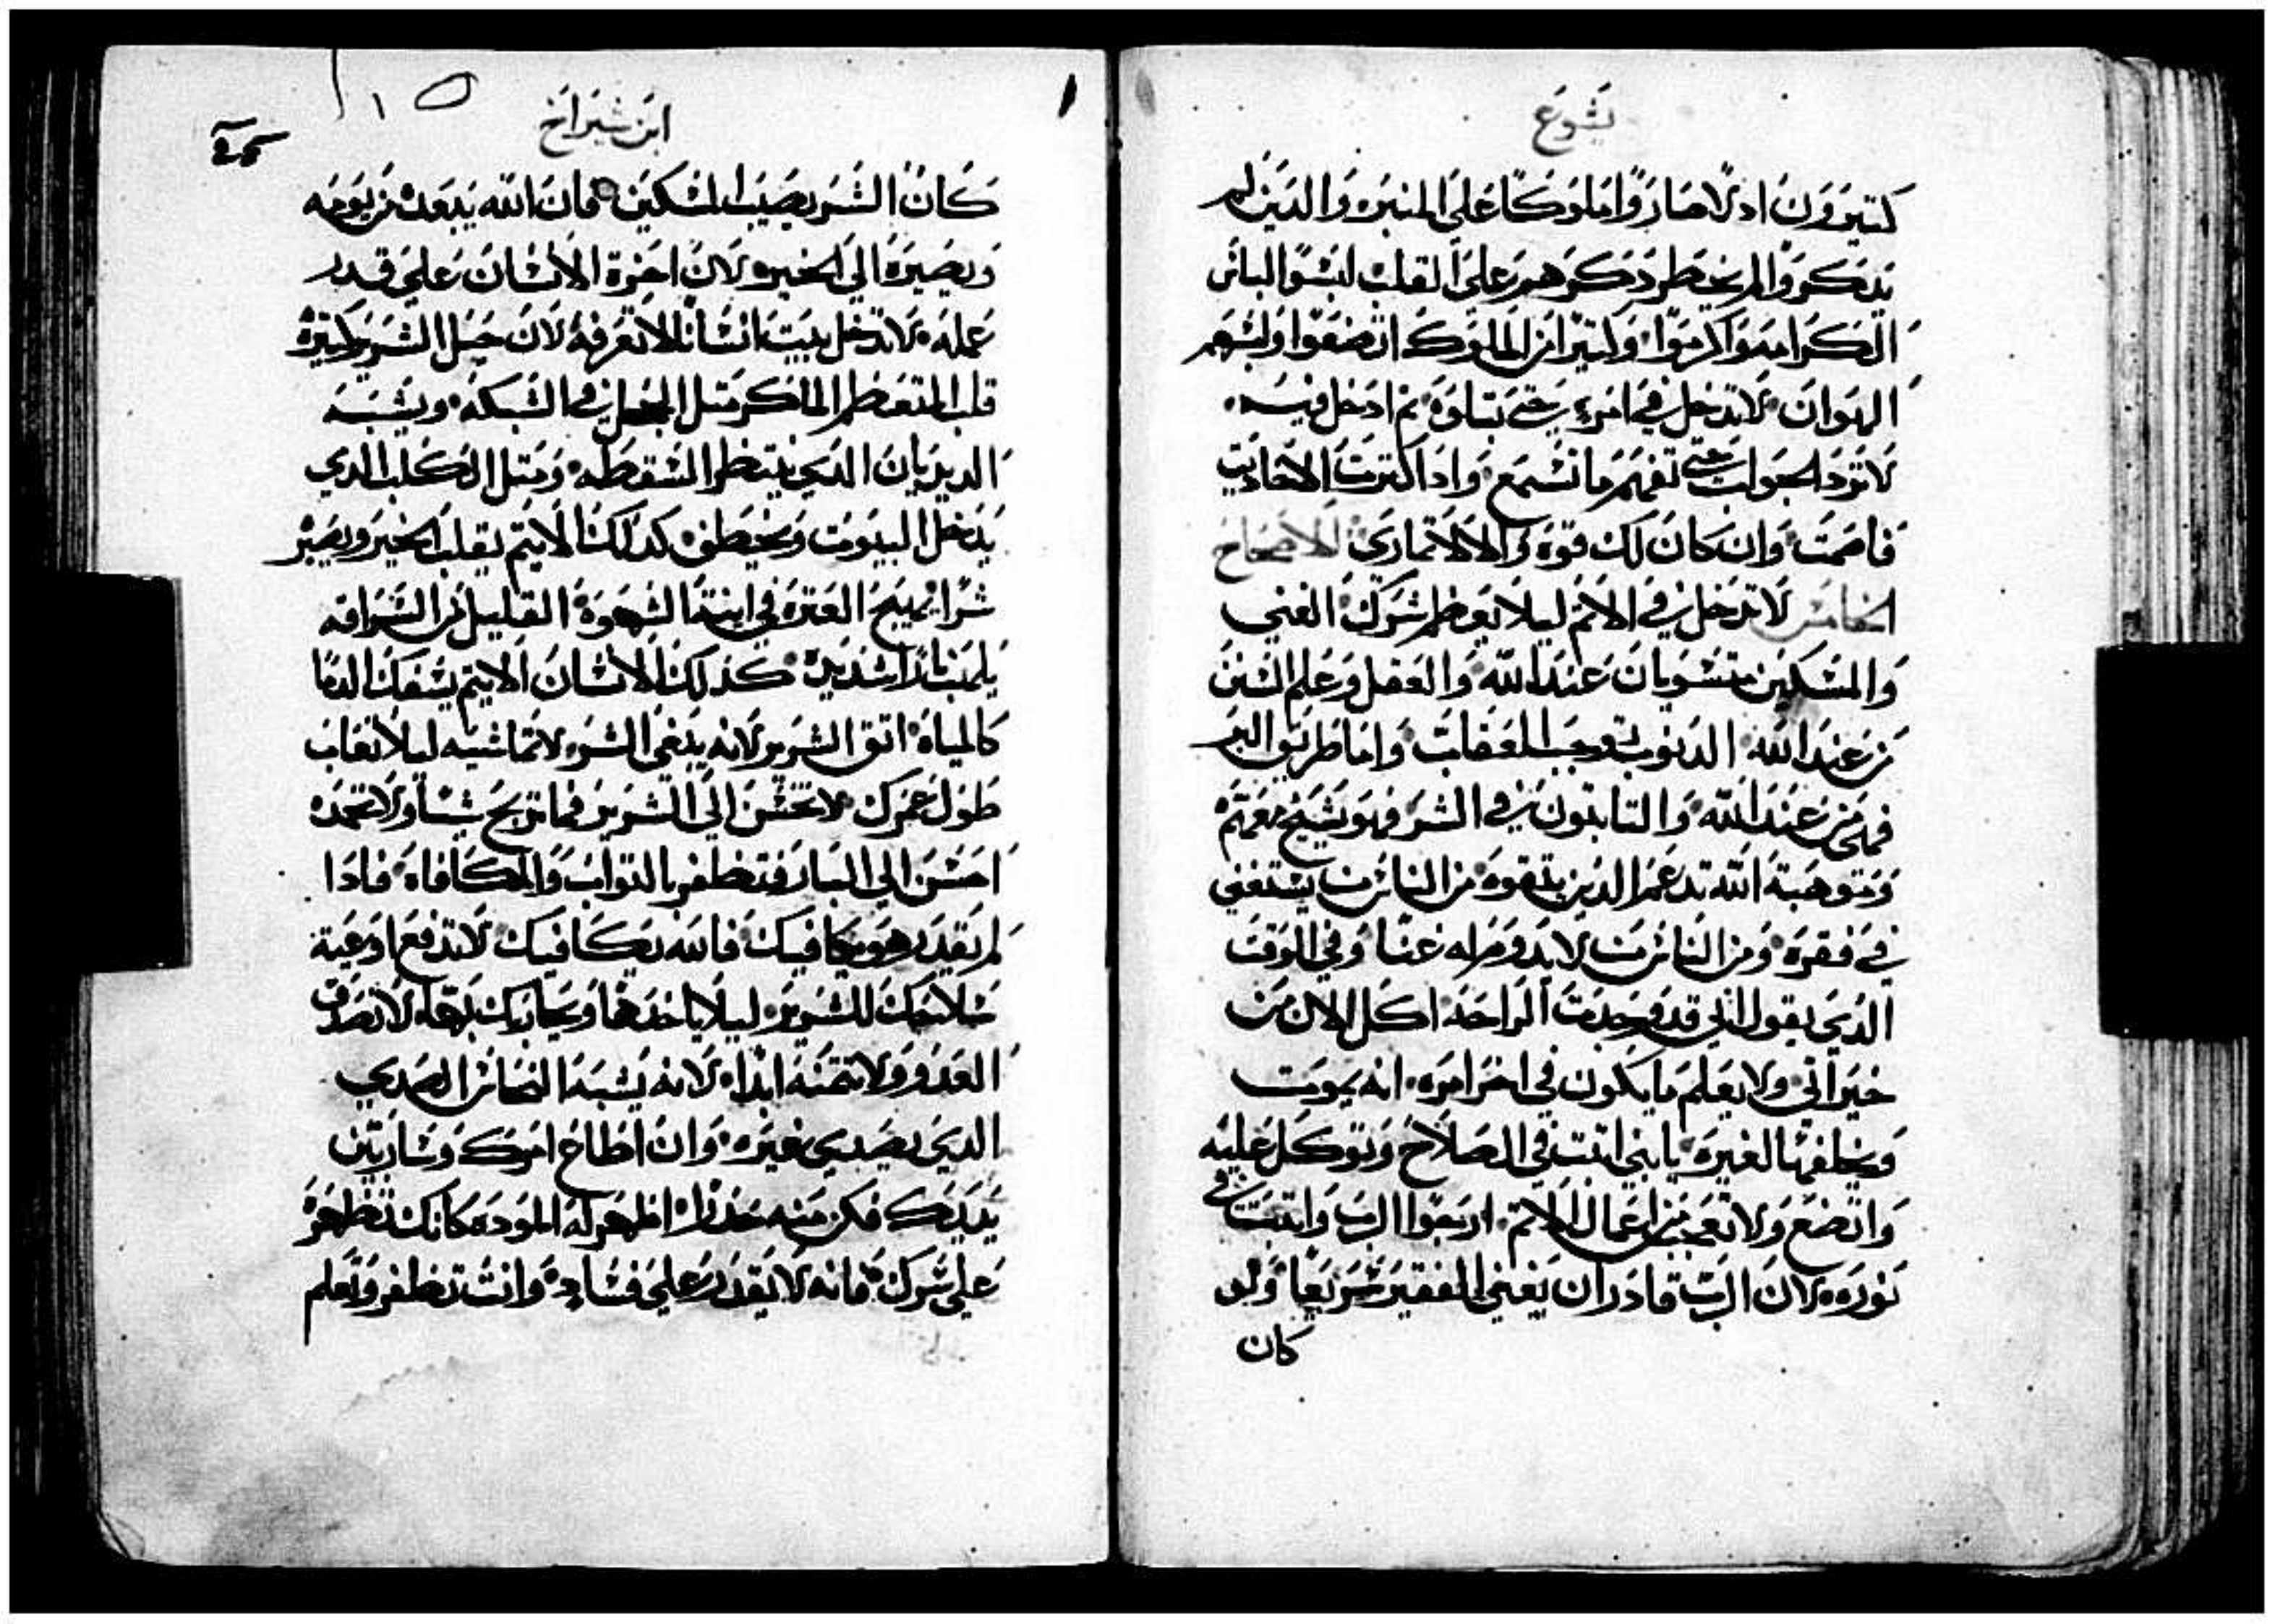 يشوع
كتيرون ادلا صاروا ملوكا على المنبر والدين لم
يدكروا لم يخطر دكرهم على القلب لبسوا لباس
الكرامه واكرموا وكتيرا من الملوك اتضعوا ولبسهم
الهوان لا تدخل في امرء حتى تتاوه تم ادخل فيه
لا ترد الجواب حتى تفهم ما تسمع وادا كترت الاحاديت
فاصمت وان كان لك قوه والا لا تماري الاصحاح
الخامس لا تدخل في الاتم ليلا يعظم شرك الغني
والمسكين متسويان عند الله والعقل وعلم السنن
من عند الله الدنوب توجب العقاب واما طريق البر
فهي من عند الله والتابتون في الشر فهو يشيخ معهم
وموهبة الله تدعم الدين يتقوه من الناس من يستغني
في فقره ومن الناس من لا يدوم له غنا وفي الوقت
الدي يقول اني قد وجدت الراحه اكل الان من
خيراتي ولا يعلم ما يكون في اخر امره انه يموت
ويخلفها لغيره يا بني اتبت في الصلاح وتوكل عليه
واتضع ولا تعجب من اعمال الاتم ارجوا الرب واتبت في
نوره لان الرب قادر ان يغني الفقير سريعا ولو
كان
ابن شيراخ
كان الشر يصيب المسكين فان الله يبعده من يومه
ويصيره الي الخير لان اخرة الانسان علي قدر
عمله لا تدخل بيت انسانا لا تعرفه لان حيل الشرير كتيرة
قلب المتعظم الماكر متل الحجل في الشبكه ويشبه
الديدبان الدي ينتظر السقطه ومتل الكلب الدي
يدخل البيوت ويخطف كدلك الاتيم يقلب الخير ويصير
شرا يهيج العتره في ابنة الشهوة القليل من الشرافه
يلهب نارا شديده كذلك الانسان الاتيم يسفك الدما
كالمياه اتق الشرير لانه يبغي الشر لا تماشيه ليلا تعاب
طول عمرك لا تحسن الي الشرير فما تربح شيا ولا تحمد
احسن الي البار فتظفر بالتواب والمكافاه فادا
لم يقدر هو يكافيك فالله يكافيك لا تدفع اوعية
سلاحك للشرير ليلا ياخدها ويحاربك بها لا تصدق
العدو ولا تتمنه ابدا لانه يشبه النحاس الصدي
الدي يصدي غيره وان اطاع امرك وسار بين
يديك فكن منه حذرا اظهر له الموده كانك تظهر
علي شرك فانه لا يقدر علي فساده وانت تظفر وتعلم